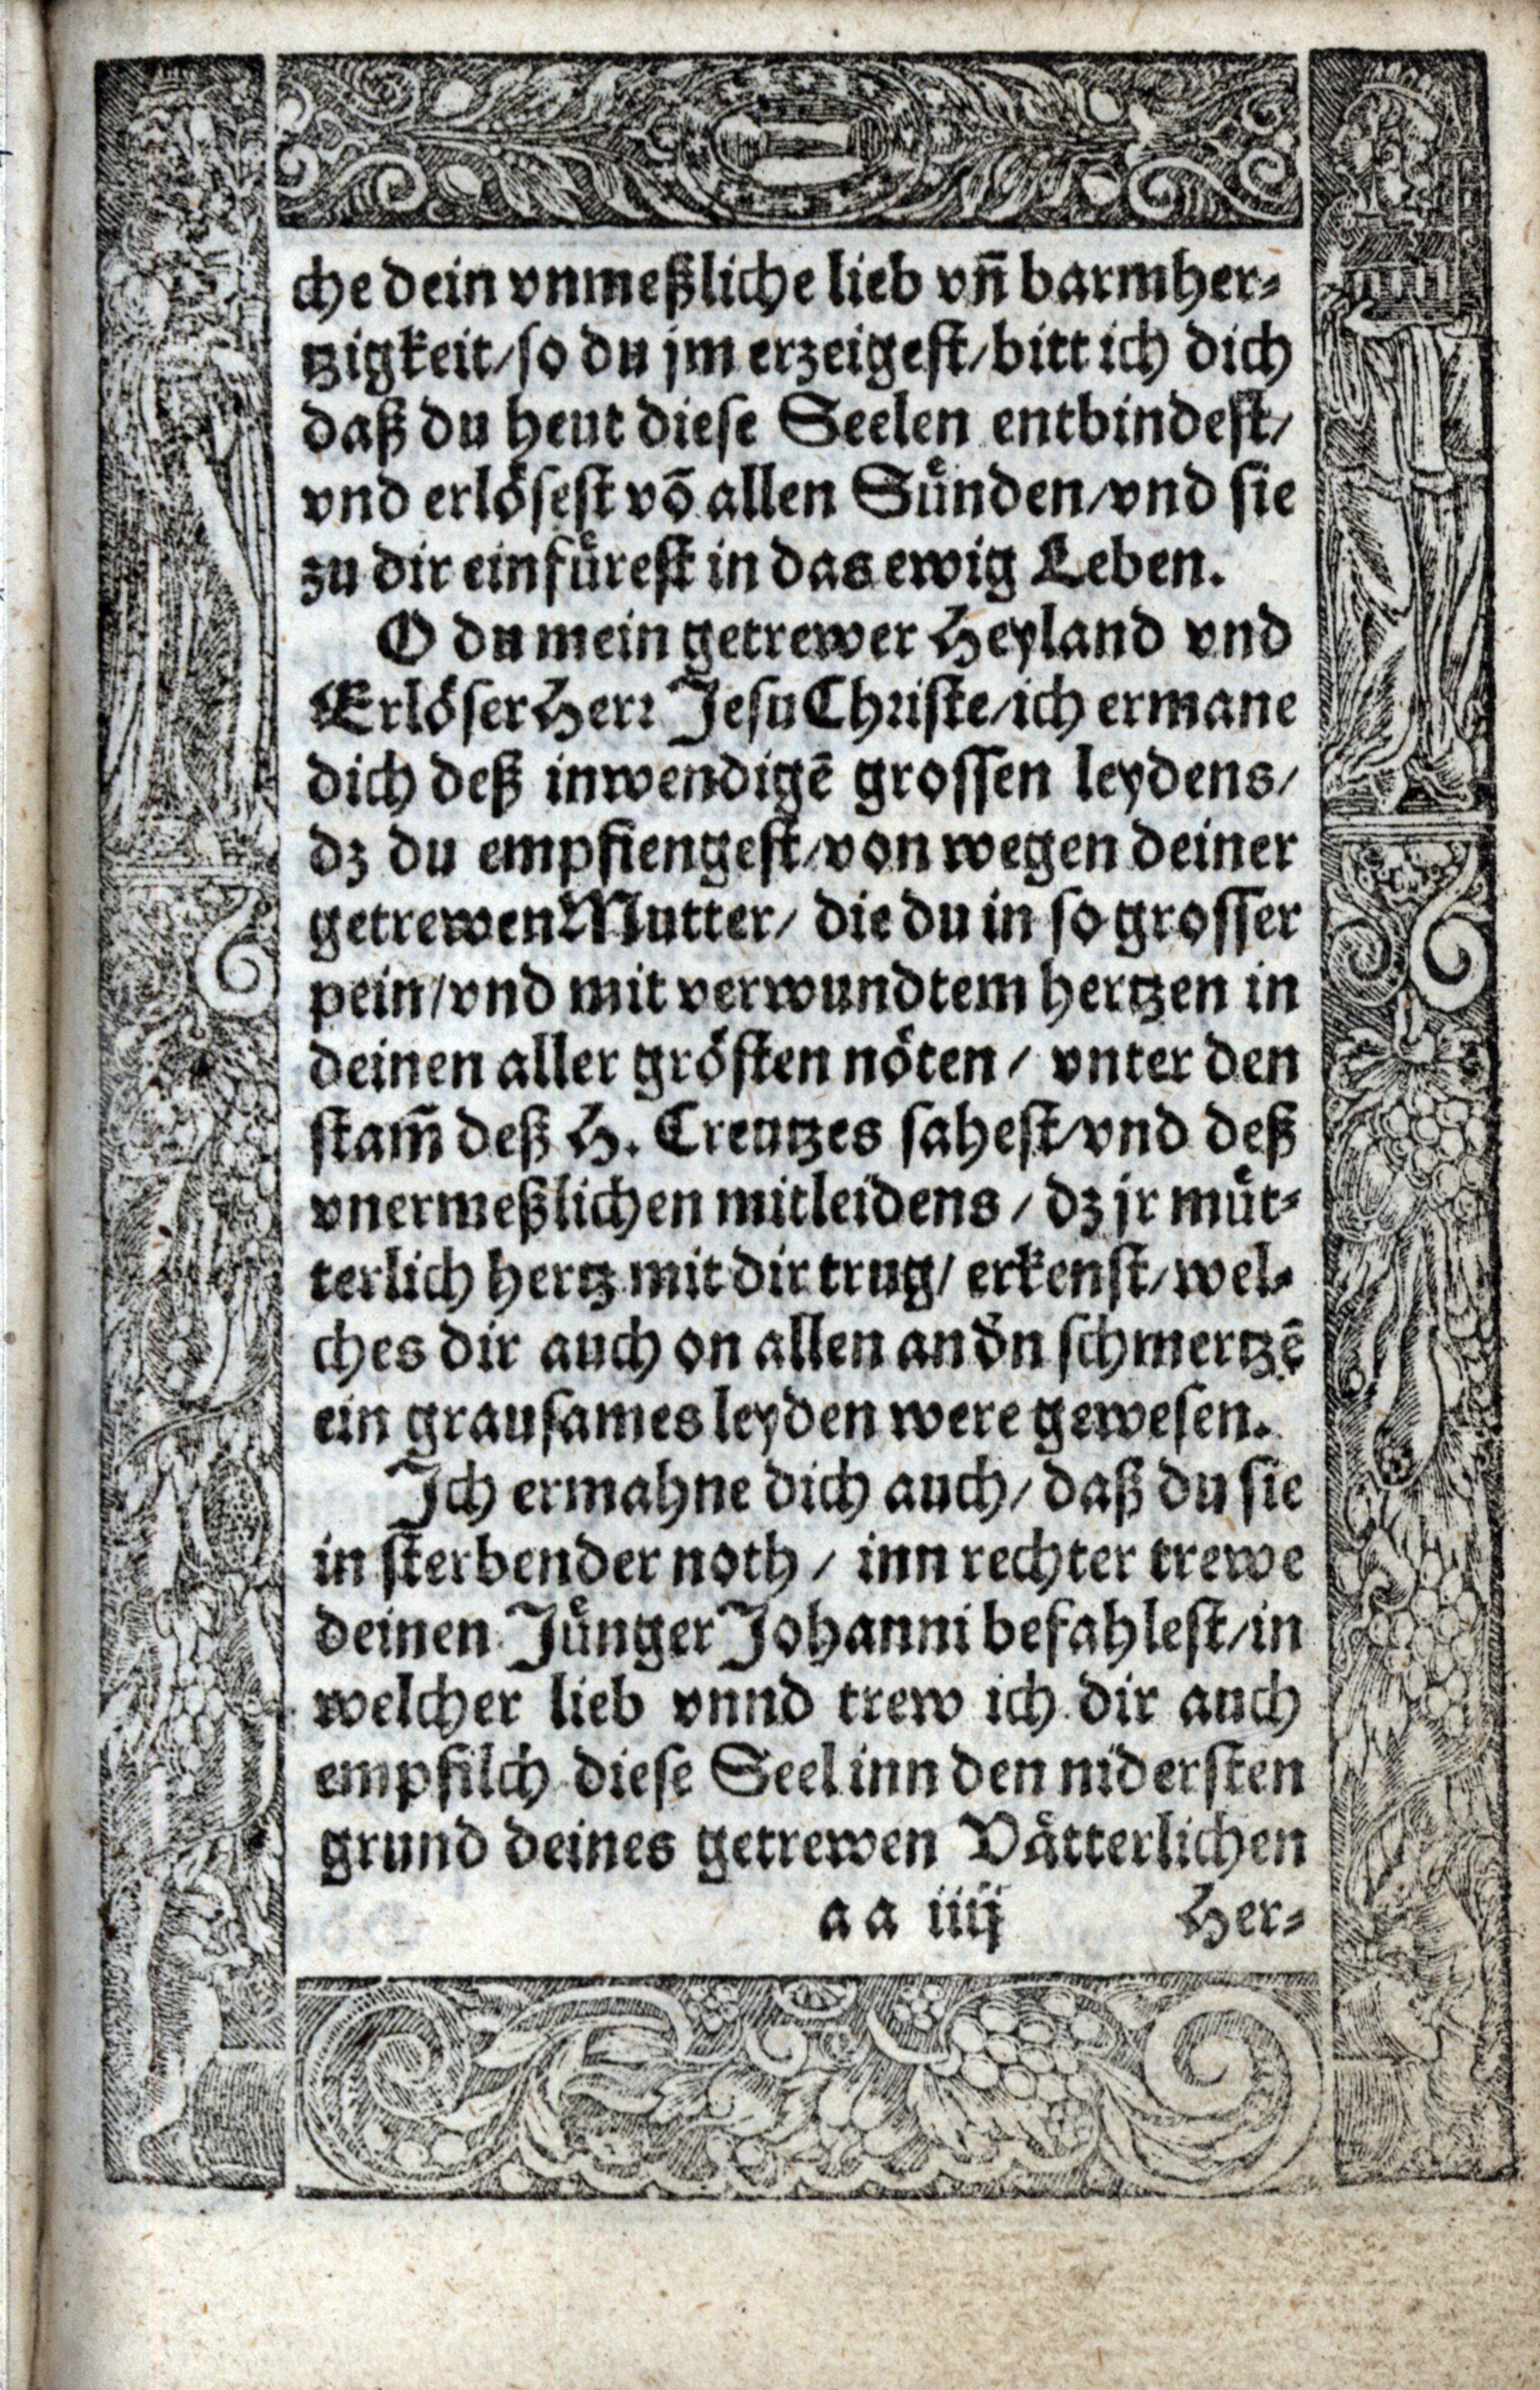 che dein vnmeßliche lieb vñ barmher⸗
tzigkeit/so du jm erzeigest/bitt ich dich
daß du heut diese Seelen entbindest/
vnd erlösest võ allen Sünden/vnd sie
zu dir einfürest in das ewig Leben.
O du mein getrewer Heyland vnd
Erlöser Herr Jesu Christe/ich ermane
dich deß inwendigẽ grossen leydens/
dz du empfiengest/von wegen deiner
getrewen Mutter/ die du in so grosser
pein/vnd mit verwundtem hertzen in
deinen aller grösten nöten/ vnter den
stam̃ deß H. Creutzes sahest/vnd deß
vnermeßlichen mitleidens/ dz jr müt⸗
terlich hertz mit dir trug/ erkenst/wel⸗
ches dir auch on allen andn̄ schmertzẽ
ein grausames leyden were gewesen.
Ich ermahne dich auch/ daß du sie
in sterbender noth/ inn rechter trewe
deinen Jünger Johanni befahlest/in
welcher lieb vnnd trew ich dir auch
empfilch diese Seel inn den nidersten
grund deines getrewen Vätterlichen
aa iiij Her⸗